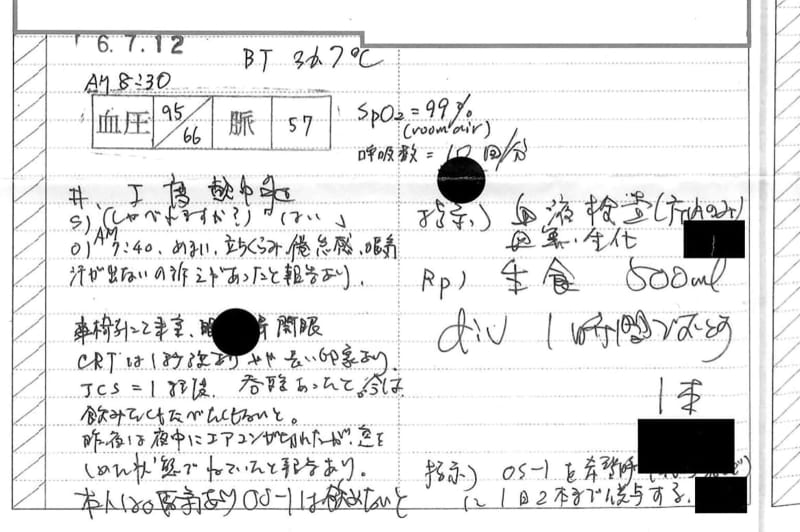 6.7.12
BT 36.7℃
AM 8:30
血圧 95/66 脈 57
SpO2=99%
(room air)
呼吸数= 回/分
#. I 度熱中症
S) (しゃべれますか?)「はい」
O) AM 7:40、めまい、立ちくらみ、倦怠感、眠気
汗が出ないの訴えがあったと報告あり.
車椅子にて来室、 開眼
CRTは1秒後よりやや長い印象あり.
JCS=1程度. あったて。今は
飲みたくもたべたくもないと。
昨夜は夜中にエアコンが切れたが、窓を
しめた状態でねていたと報告あり。
本人は あり OS-1は飲めないと
指示) 血液検査(
血算、生化
Rp) 生食 500ml
div 1時間でおとす
1本
指示) OS-1を希望時(
に1日2本まで投与する.